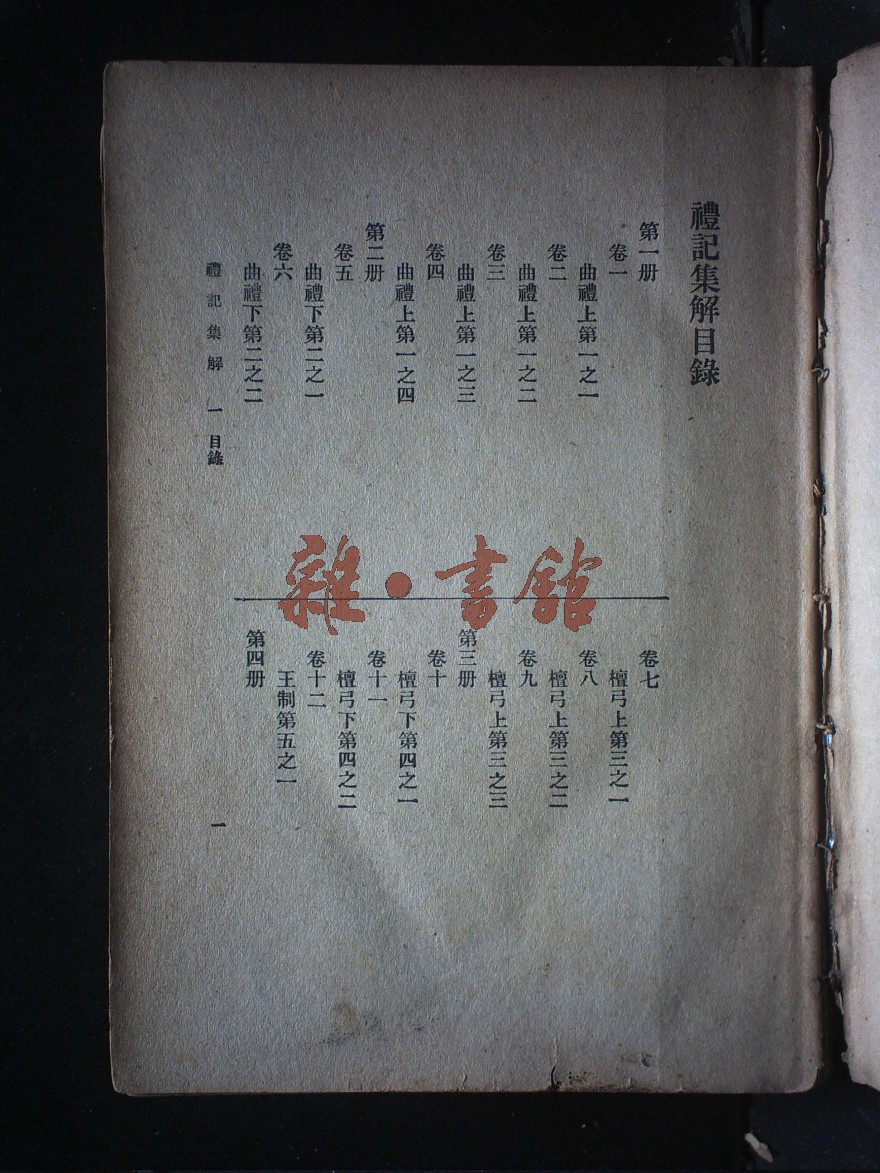 禮記集解目錄
第一册
卷一
曲禮上第一之一
卷二
曲禮上第一之二
卷三
曲禮上第一之三
卷四
曲禮上第一之四
第二册
卷五
曲禮下第二之一
卷六
曲禮下第二之二
卷七
檀弓上第三之一
卷八
檀弓上第三之二
卷九
檀弓上第三之三
第三册
卷十
檀弓下第四之一
卷十一
檀弓下第四之二
卷十二
王制第五之一
第四册
禮記集解 一 目錄
一
雜·書館